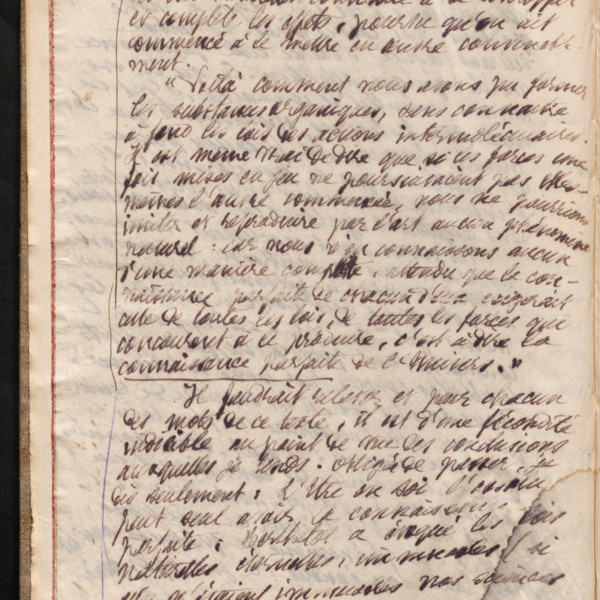 et complète les effets, pourvu qu'on ait
commencé à le mettre en œuvre convenable-
ment.
" Voilà comment nous avons pu former
les substances organiques, sans connaître
à fond les lois des actions intermoléculaires.
Il est même vrai de dire que si ces forces une
fois mises en jeu ne poursuivaient pas elles-
mêmes l'œuvre commencée, nous ne pourrions
imiter et reproduire par l'art aucun phénomène
naturel : car nous n'en connaissons aucun
d'une manière complète, attendu que la con-
naissance parfaite de chacun d'eux exigerait
celle de toutes les lois, de toutes les forces que
concourent à le produire, c'est à dire la
connaissance parfaite de l'Univers. "
Il faudrait relever et peser chacun
des mots de ce texte, il est d'une fécondité
indicible au point de vue des conclusions
auxquelles je tends. Obligé de passer, je
dis seulement : L'Être en soi
peut seul avoir la connaissance
parfaite ; Berthelot a invoqué les lois
naturelles éternelles, immuables ( si
nos sciences